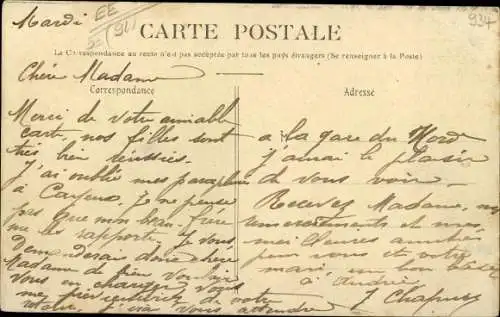 Mardi
EE
934
CARTE POSTALE
La Correspondance au recto n'est pas acceptée par tous les pays étrangers (Se renseigner à la Poste)
Chère Madame
Correspondance
Merci de votre aimable
carte, nos filles sont
très bien réussies.
J'ai oublié mes parapluies
à Cayeux. Je ne pense
pas que mon beau-frère
me les rapporte. Je vous
demanderais donc chère
Madame de bien vouloir
vous en charger. Vous
me de votre
vous attendre
Adresse
à la gare du Nord
j'aurai le plaisir
de vous voir.
Recevez Madame, nos
remerciements et mes
meilleures amitiés
pour vous et votre
mari, un bon baiser
à André
J Chapuis